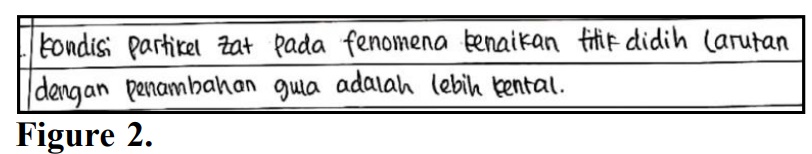 kondisi partikel zat pada fenomena kenaikan titik didih larutan
dengan penambahan gula adalah lebih kental.
Figure 2.